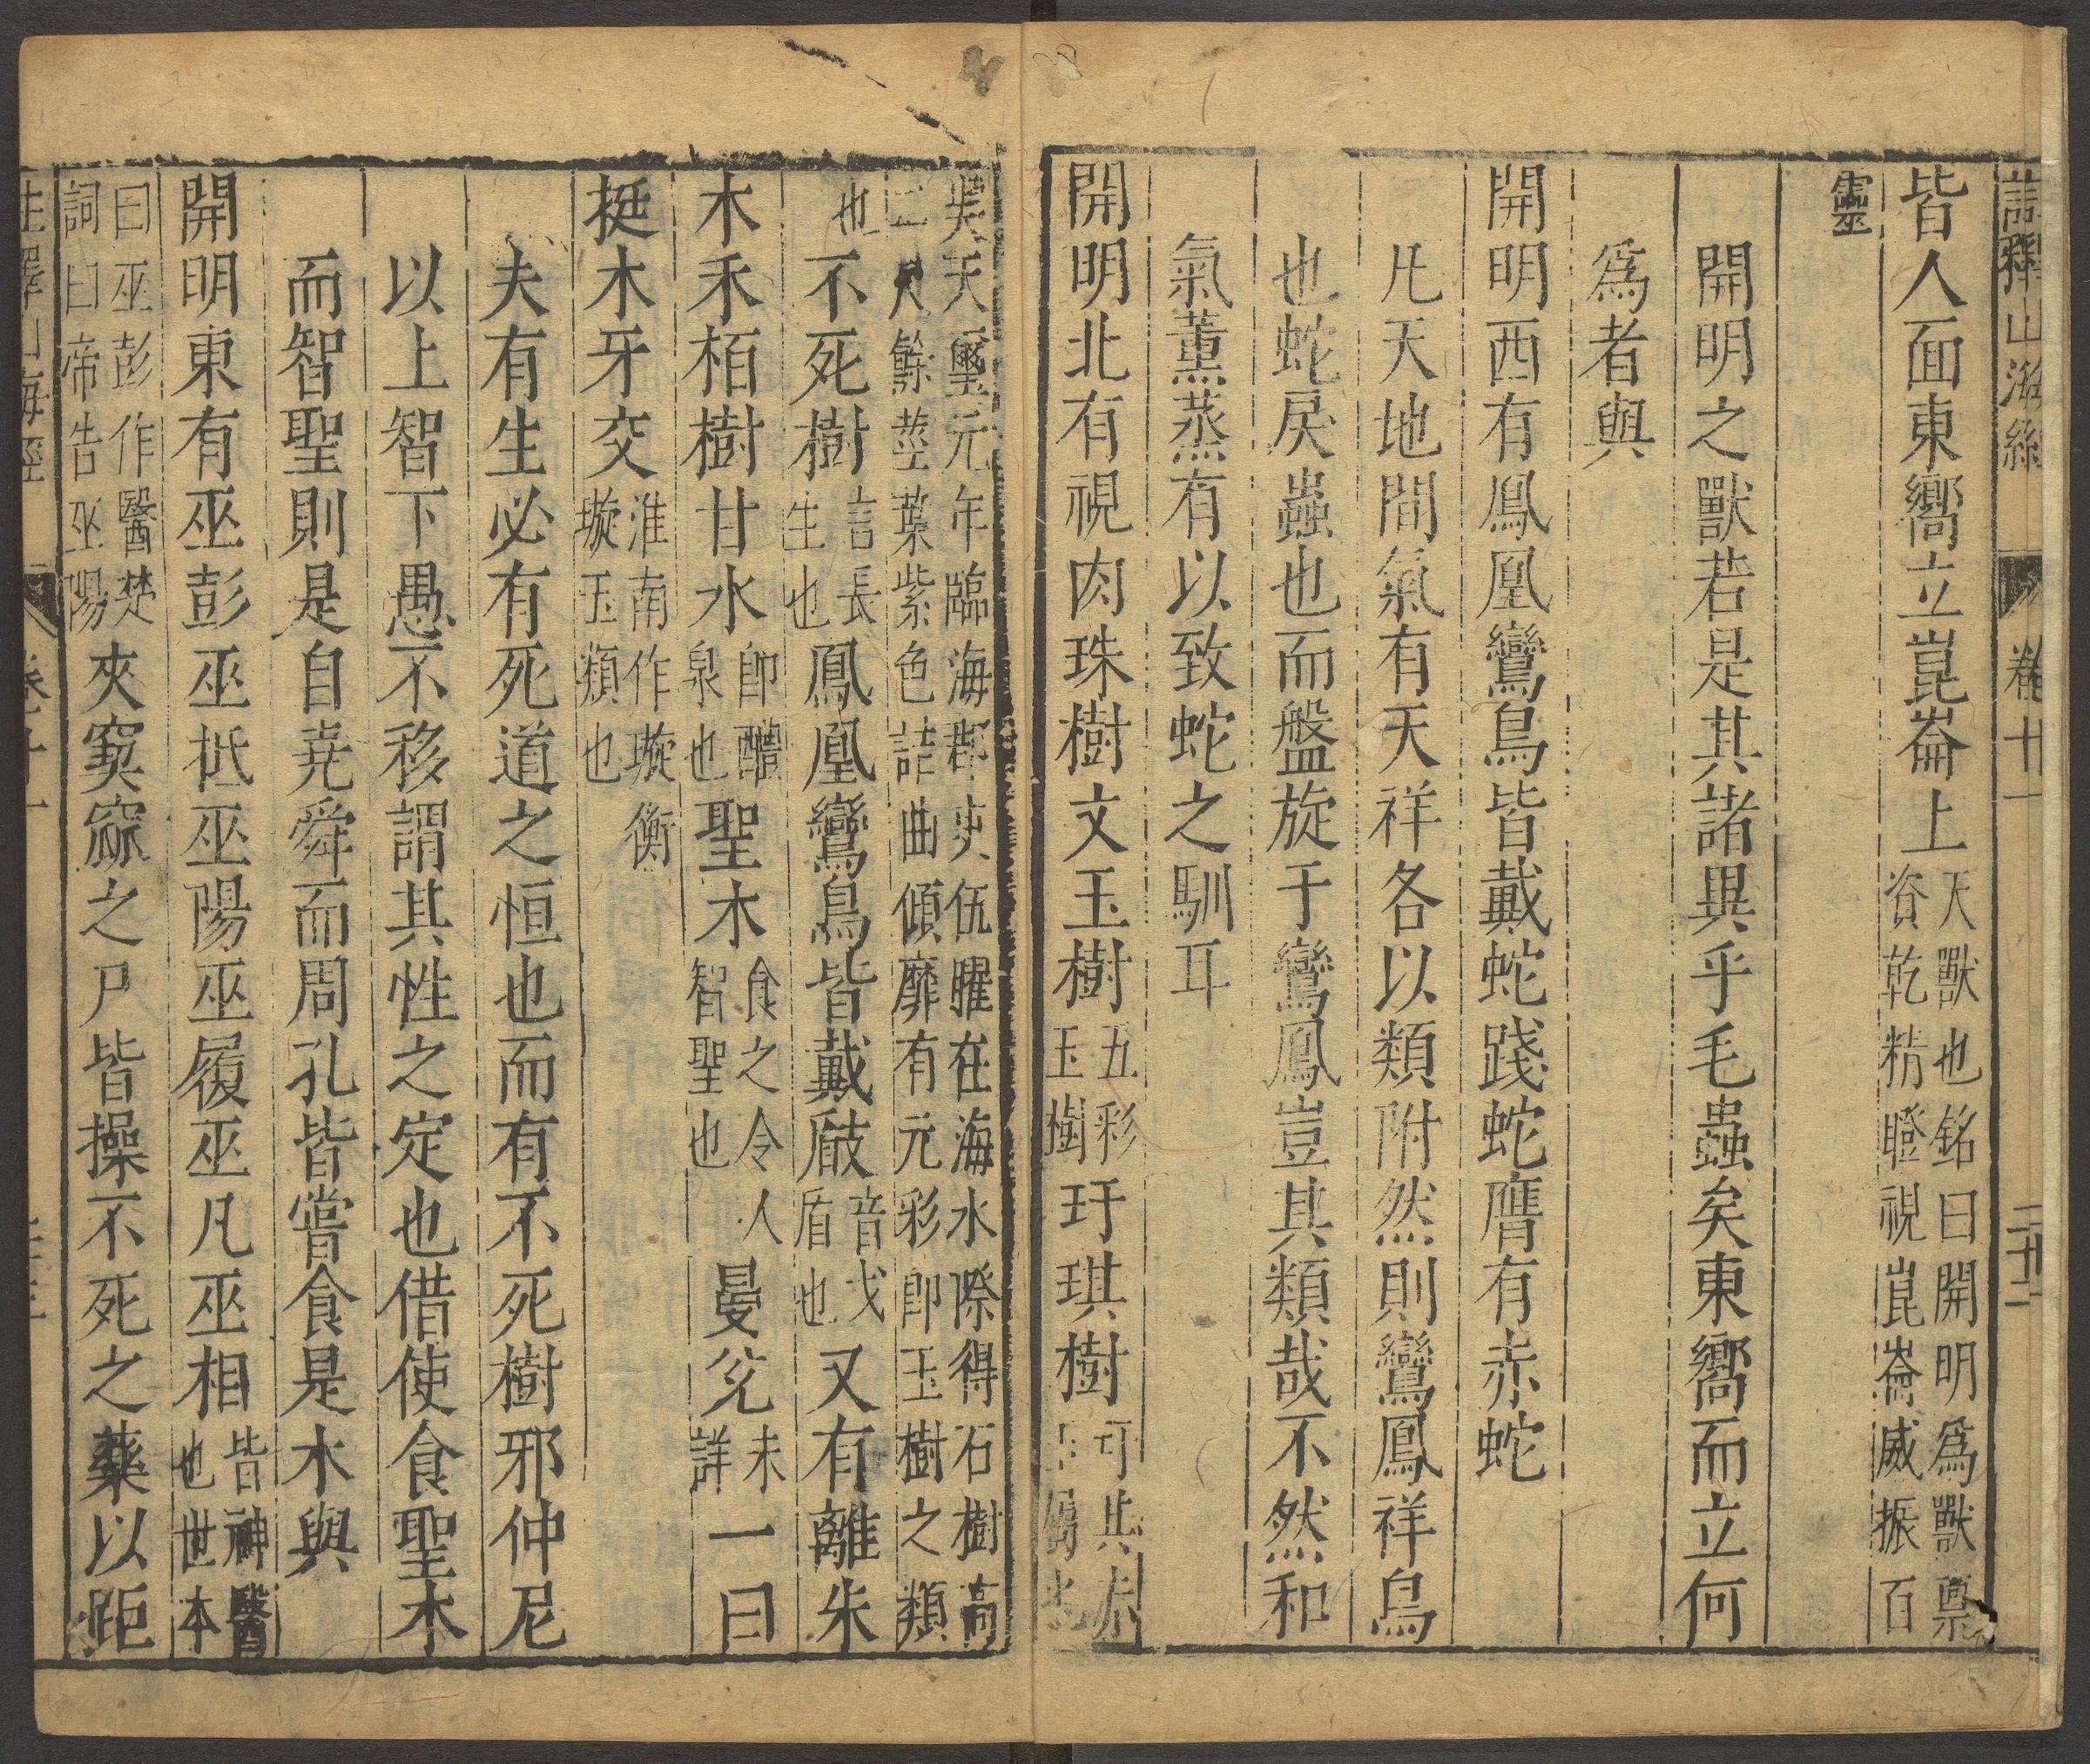 註釋山海經 卷十一 二十二
皆人面東嚮立崑崙上天獸也銘曰開明爲獸稟資乾精瞪視崑崙威振百
靈
開明之獸若是其諸異乎毛蟲矣東嚮而立何
爲者與
開明西有鳳凰鸞鳥皆戴蛇踐蛇膺有赤蛇
凡天地間氣有天祥各以類附然則鸞鳳祥鳥
也蛇戾蟲也而盤旋于鸞鳳豈其類哉不然和
氣薰蒸有以致蛇之馴耳
開明北有視肉珠樹文玉樹五彩玉樹玗琪樹玗其赤玉屬也
吳天璽元年臨海郡吏伍曜在海水際得石樹高二尺餘莖葉紫色詰曲傾靡有元彩卽玉樹之類
也不死樹言長生也鳳凰鸞鳥皆戴瞂音戈盾也又有離朱
木禾栢樹甘水卽醴泉也聖木食之令人智聖也曼兌未詳一曰
挺木牙交淮南作璇衡璇玉類也
夫有生必有死道之恒也而有不死樹邪仲尼
以上智下愚不移謂其性之定也借使食聖木
而智聖則是自堯舜而周孔皆嘗食是木與
開明東有巫彭巫抵巫陽巫履巫凡巫相皆神醫也世本
曰巫彭作醫楚詞曰帝告巫陽夾窫窳之尸皆操不死之藥以距
註釋山海經 卷十一